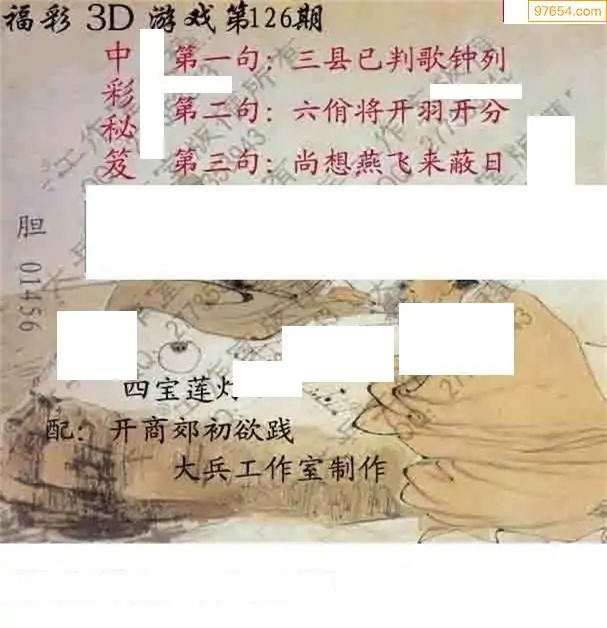 97654.com
福彩 3D 游戏第126期
中彩秘笈
第一句：三县已判歌钟列
第二句：六佾将开羽开分
第三句：尚想燕飞来蔽日
胆 01456
四宝莲灯
配：开商郊初欲践
大兵工作室制作